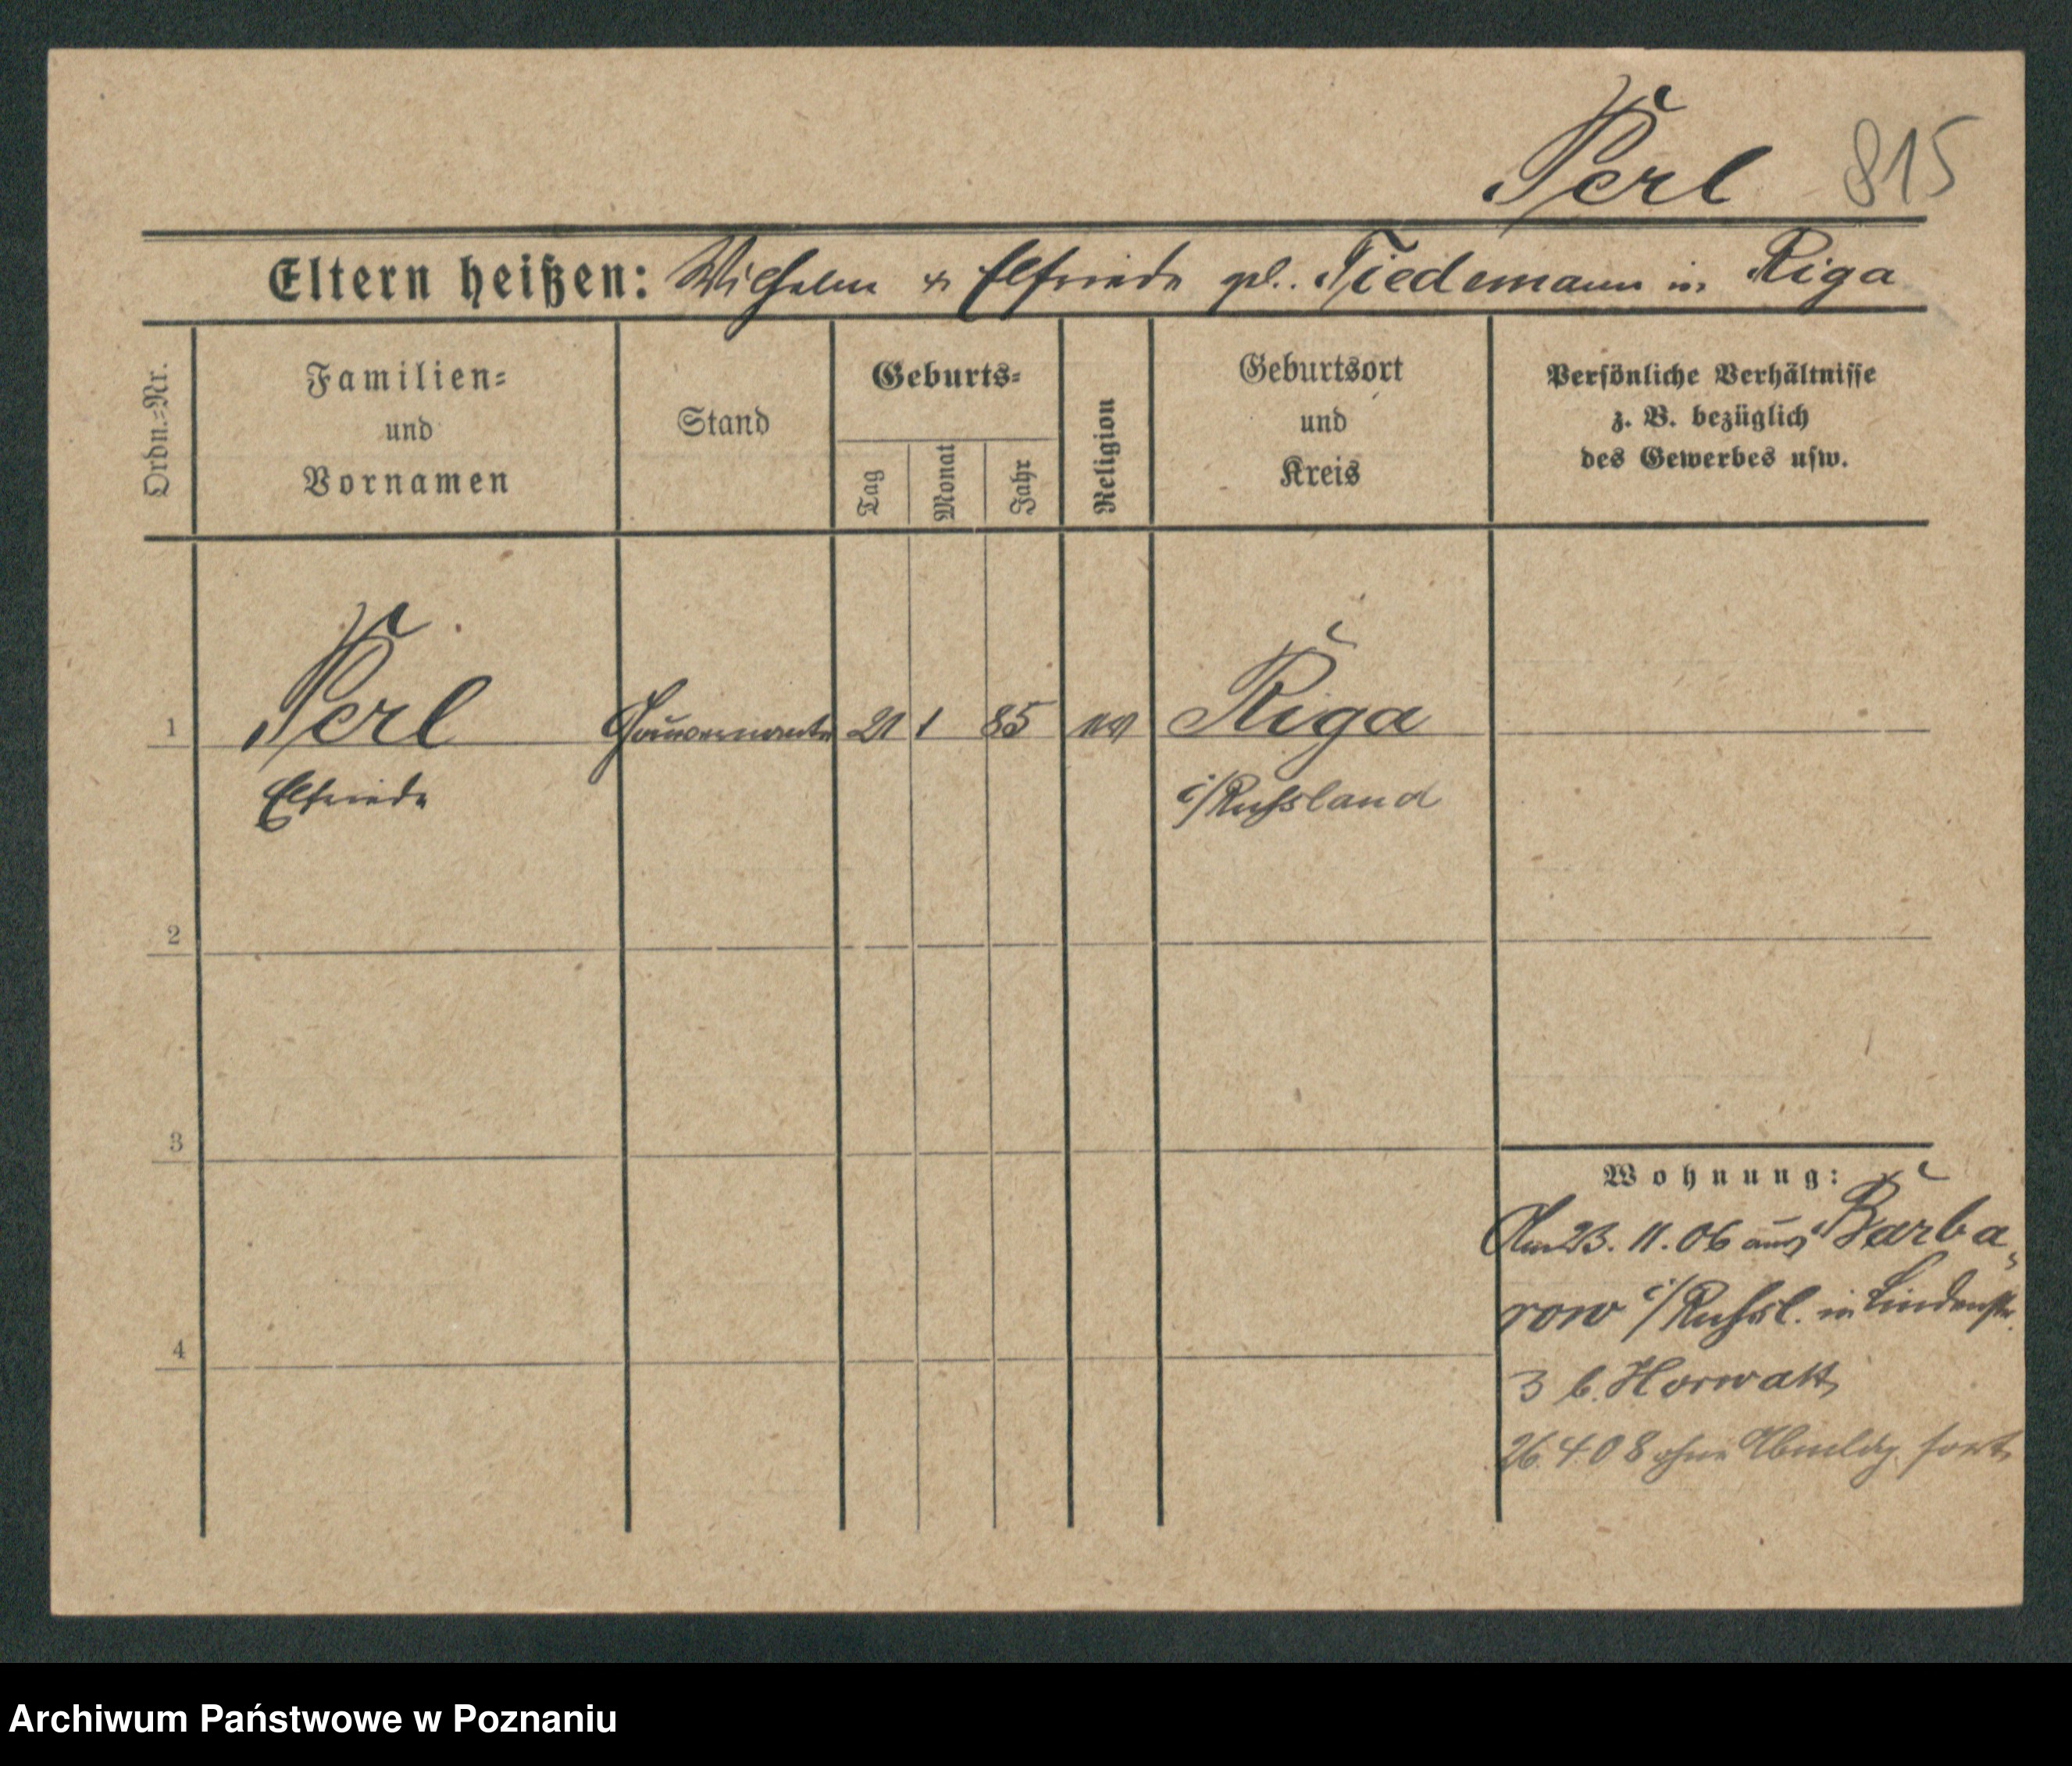 Perl 815
Eltern heißen: Wilhelm & Elfriede geb. Tiedemann in Riga
Ordn.=Nr.
Familien=
und
Vornamen
Stand
Geburts=
Tag
Monat
Jahr
Religion
Geburtsort
und
Kreis
Persönliche Verhältnisse
z. B. bezüglich
des Gewerbes usw.
1 Perl Gouvernante 21 1 85 ev Riga
Elfriede i/Russland
2
3
4
Wohnung:
Am 23. 11. 06 aus Barba
row i/Russl. in Lindenstr.
3 b. Horwatt
26.4.08 ohne Abmeldg. fort
Archiwum Państwowe w Poznaniu